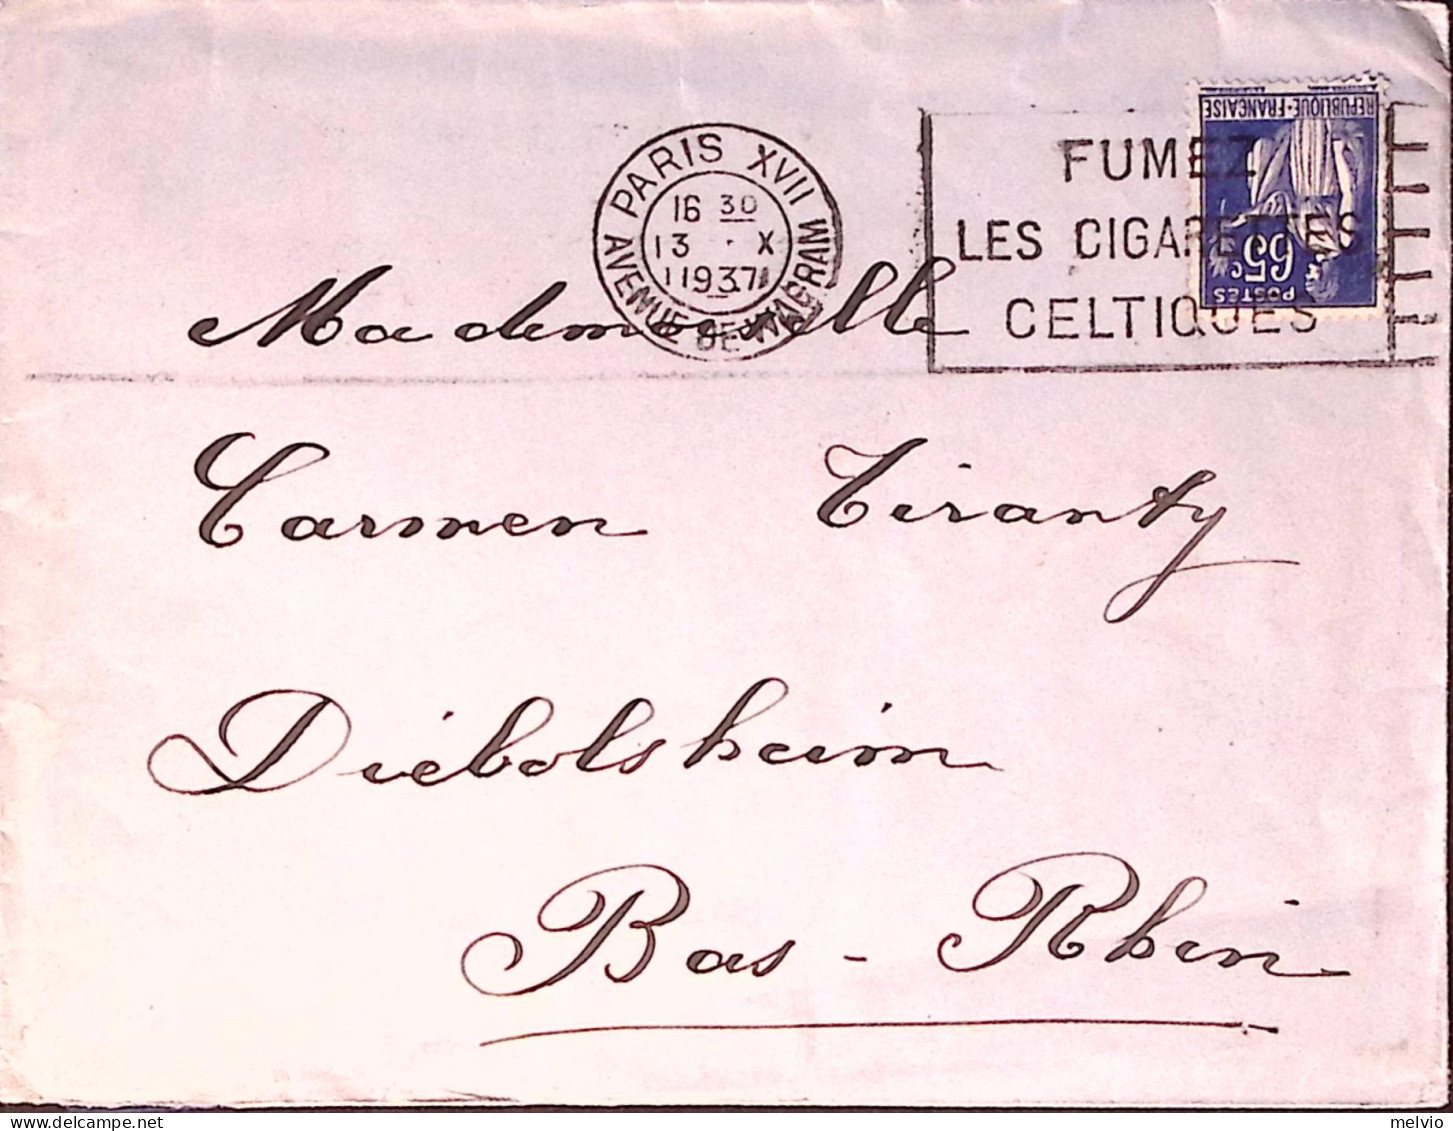 PARIS XVII
AVENUE DE WAGRAM
16 30
13 · X
1937
FUMEZ
LES CIGARETTES
CELTIQUES
REPUBLIQUE·FRANÇAISE
65c
POSTES
Mademoiselle
Carmen Tiranty
Diebolsheim
Bas-Rhin
melvio